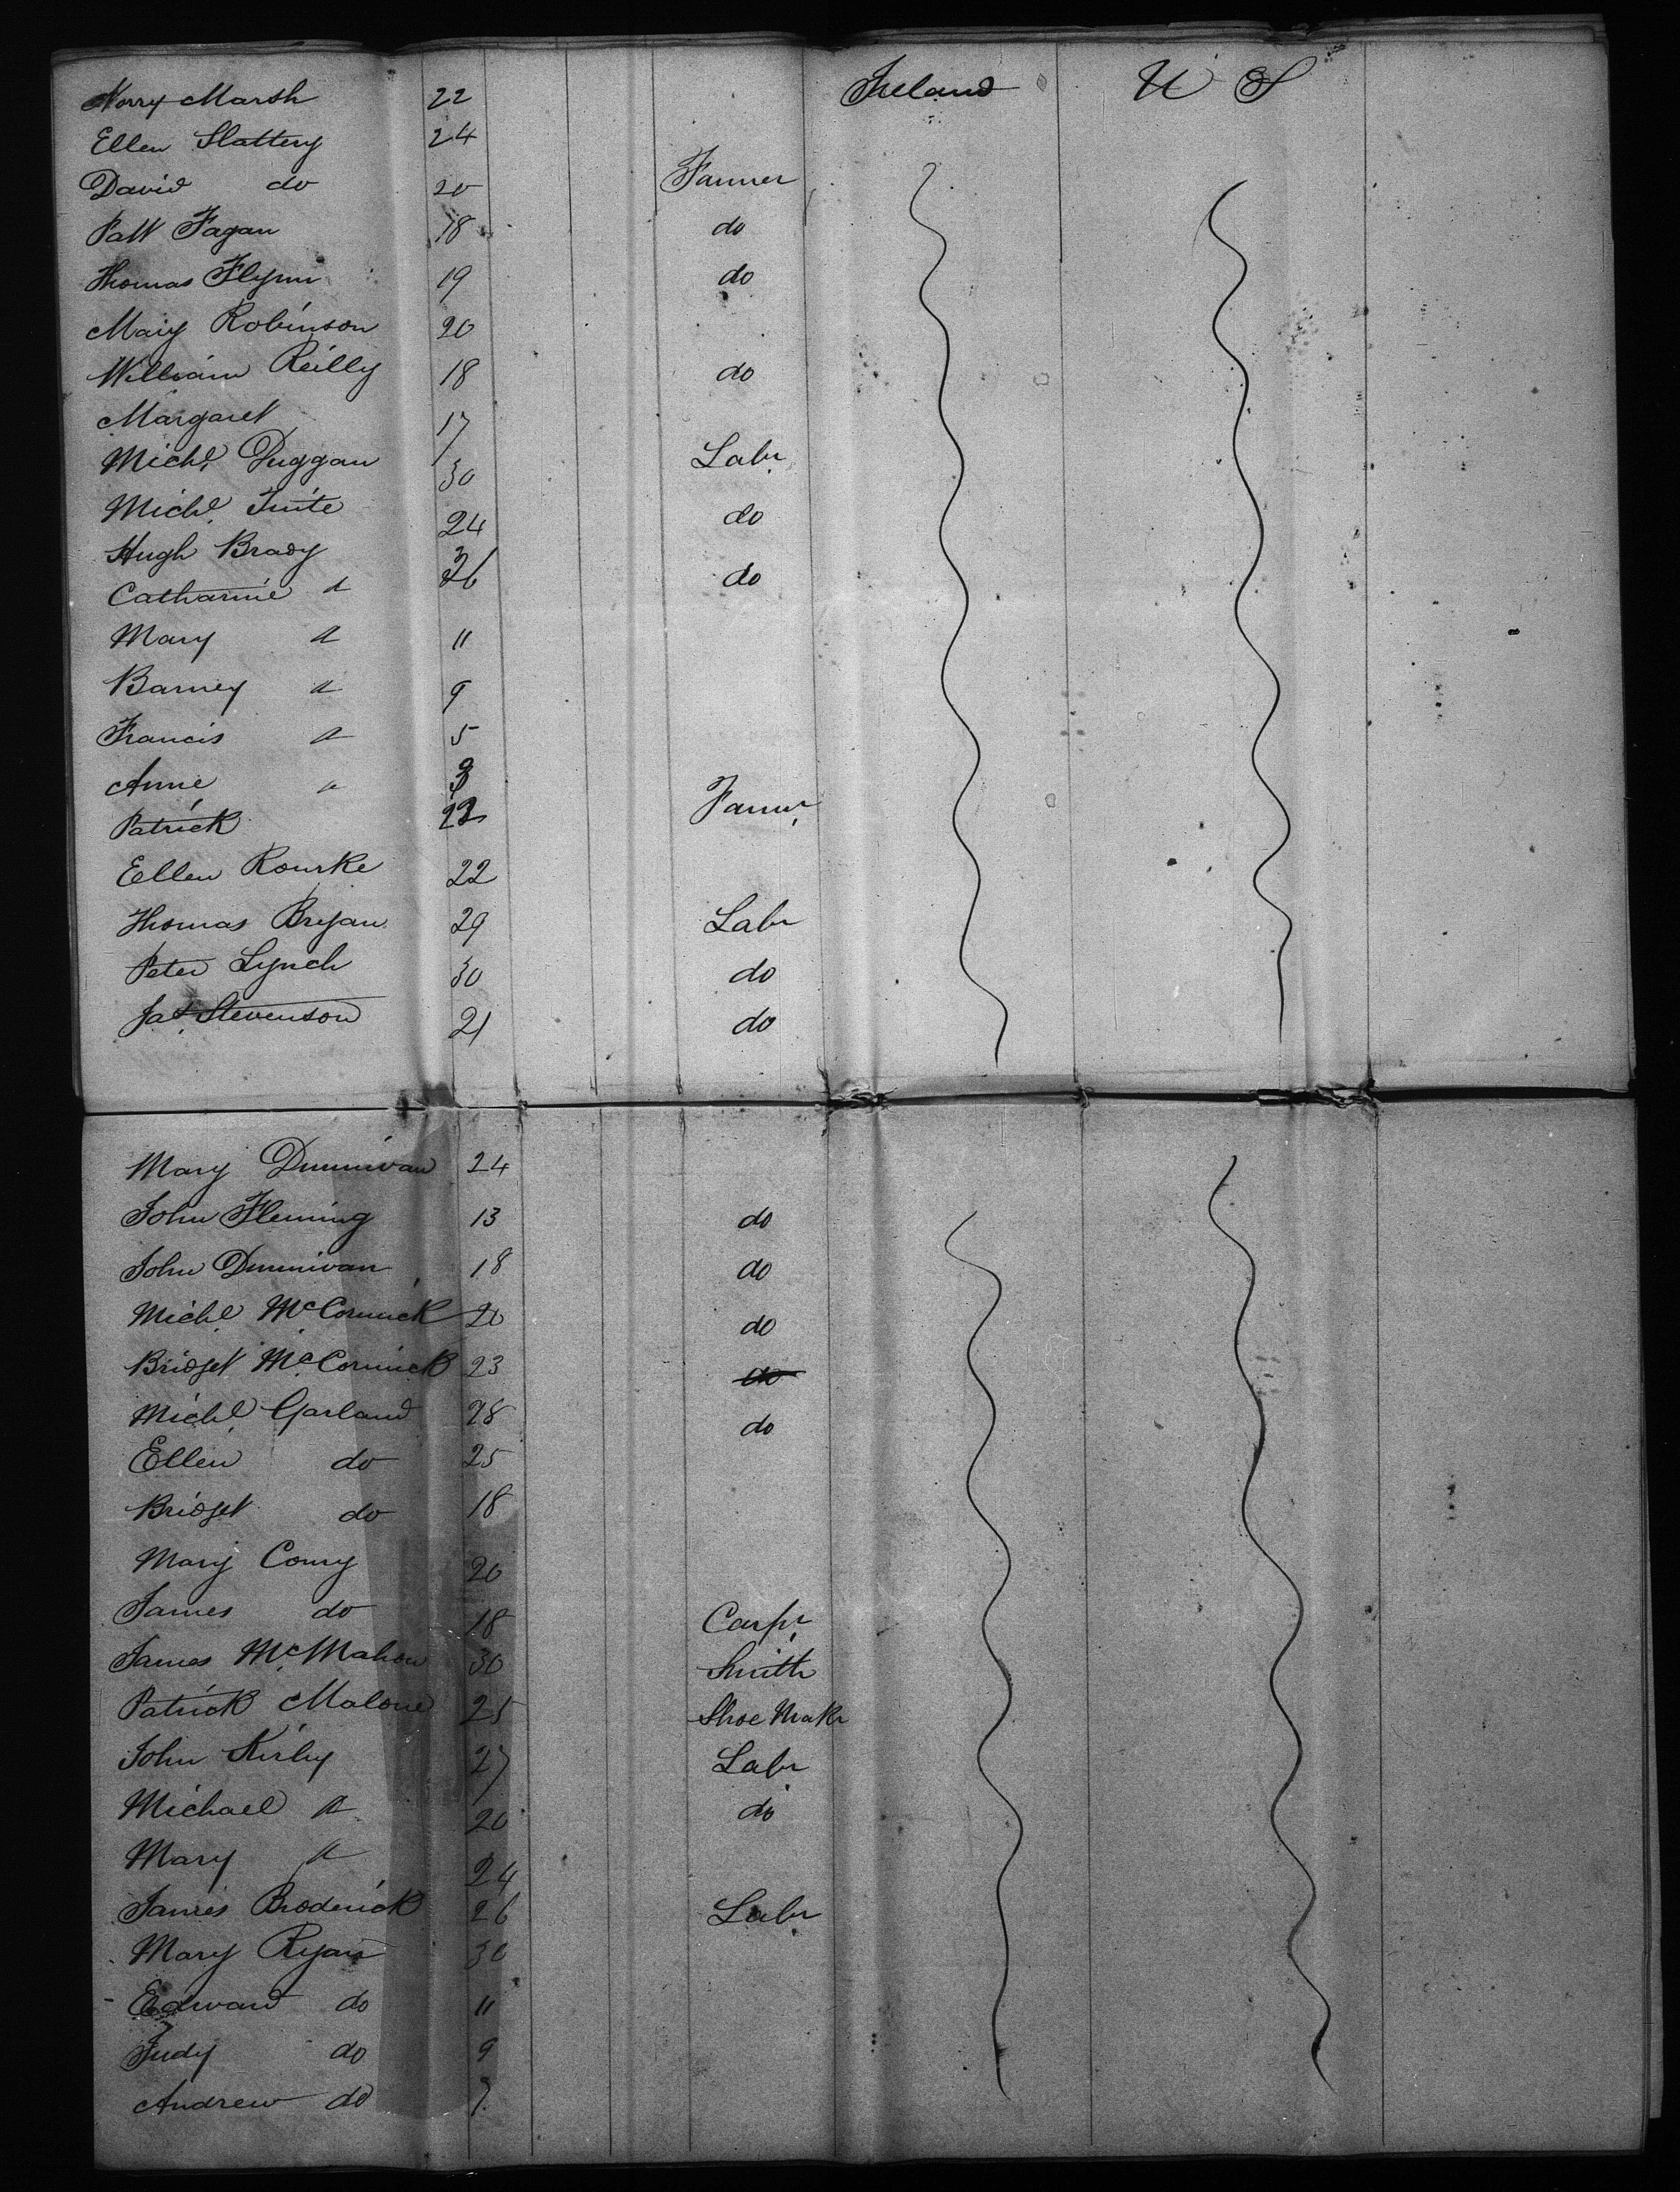 Mary Marsh 22 Ireland U S
Ellen Slattery 24
David do 20 Farmer
Patt Fagan 18 do
Thomas Flynn 19 do
Mary Robinson 20
William Reilly 18 do
Margaret 17
Michl. Duggan 30 Labr
Michl. Tuite 24 do
Hugh Brady 36 do
Catharine
Mary 11
Barney 9
Francis 5
Anne 3
Patrick 22 Farmr
Ellen Rourke 22
Thomas Bryan 29 Labr
Peter Lynch 30 do
Jas. Stevenson 21 do
Mary Dunnivan 24
John Fleming 13 do
John Dunnivan 18 do
Michl. McCormick 20 do
Bridget McCormick 23 do
Michl. Garland 28 do
Ellen do 25
Bridget do 18
Mary Coury 20
James do 18 Carpr
James McMahon 30 Smith
Patrick Malone 25 Shoe Makr
John Kirby 27 Labr
Michael 20 do
Mary 24
James Broderick 26 Labr
Mary Ryan 30
Edward do 11
Judy do 9
Andrew do 7